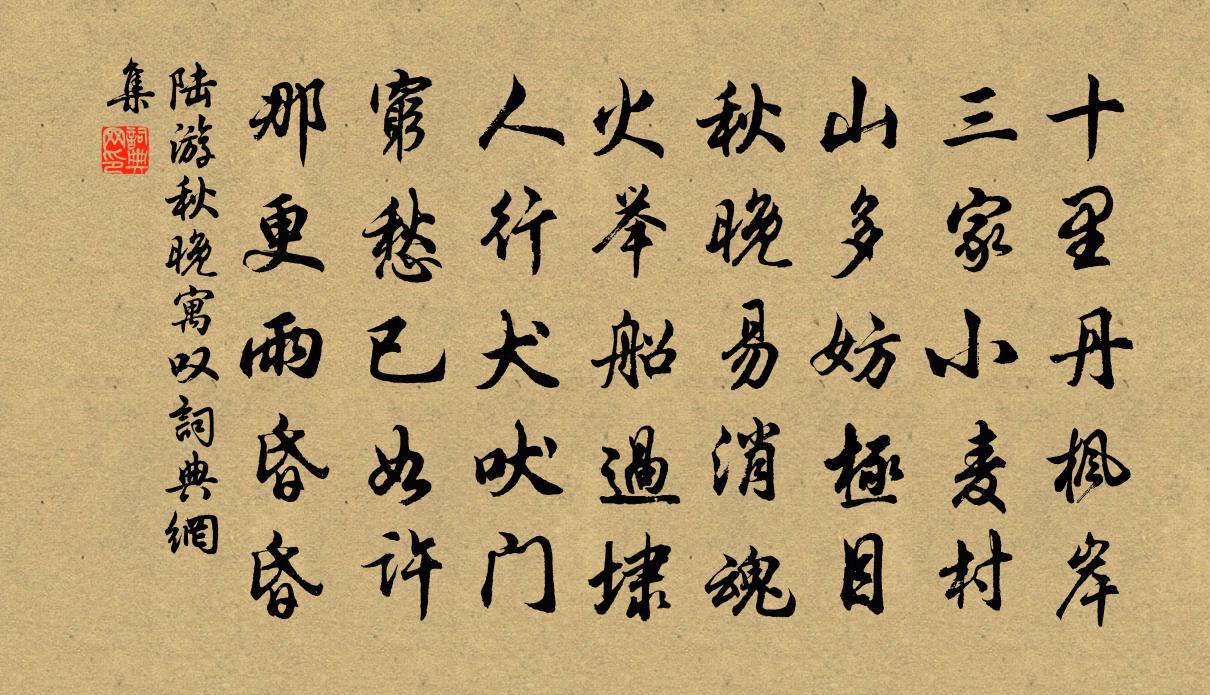 十里丹楓岸
三家小麦村
山多妨極目
秋晚易消魂
火举船過埭
人行犬吠门
窮愁已如许
那更雨昏昏
陆游秋晚寓叹詞典網
集
詞典
网印